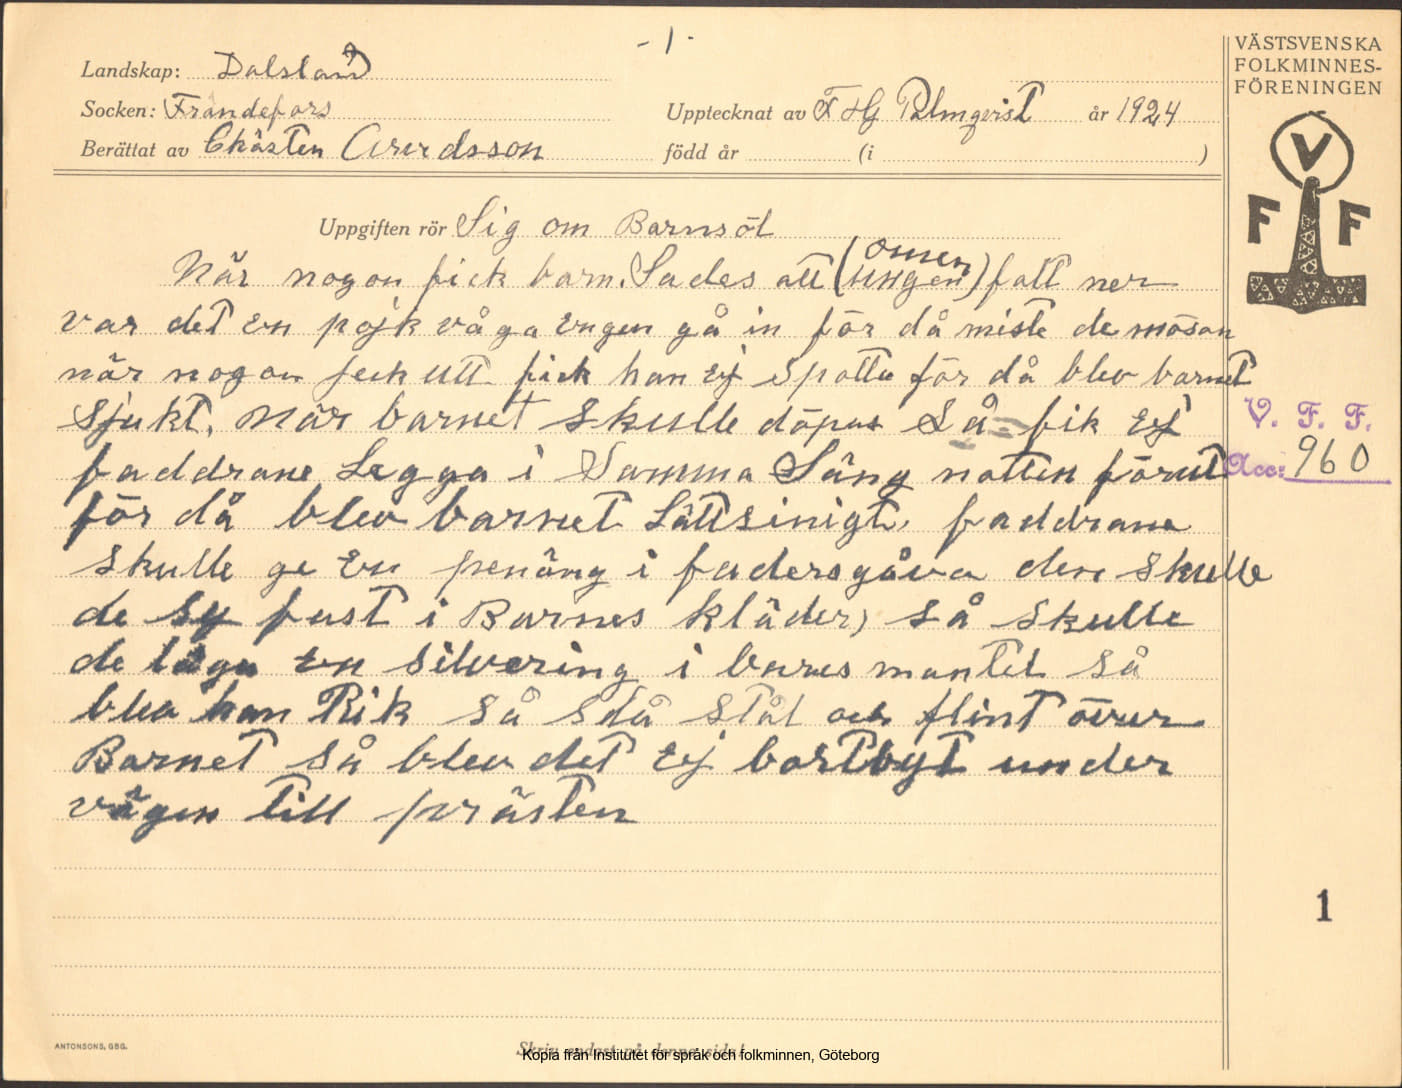 - 1 -
Landskap: Dalsland
Socken: Frändefors
Upptecknat av F Hj Palmqvist år 1924
Berättat av Chästen Arvrdsson
född år (i )
VÄSTSVENSKA
FOLKMINNES-
FÖRENINGEN
V
F F
Uppgiften rör Sig om Barnsöl
När nogon fick barn. Sades att (ungen) omen fatt ner
var det En pojk våga Engen gå in för då miste de mösan
når nogon feck utt fick han Ej Spotta för då blev barnet
Sjukt. När barnet Skulle döpas Så fik Ej
faddrane Legga i Samma Säng natten förut
för då blev barnet Lättsinigt. faddrane
Skulle ge En penäng i fadersgåva den Skulle
de sy fast i Barnes kläder, så skulle
de läga En Silvering i barnes mantel Så
blev han Rik så slå Stål och flint över
Barnet så blev det Ej bortbyt under
vägen till prästen
V. F. F.
Acc: 960
1
ANTONSONS, GBG.
Skriv endast på denna sida!
Kopia från Institutet för språk och folkminnen, Göteborg